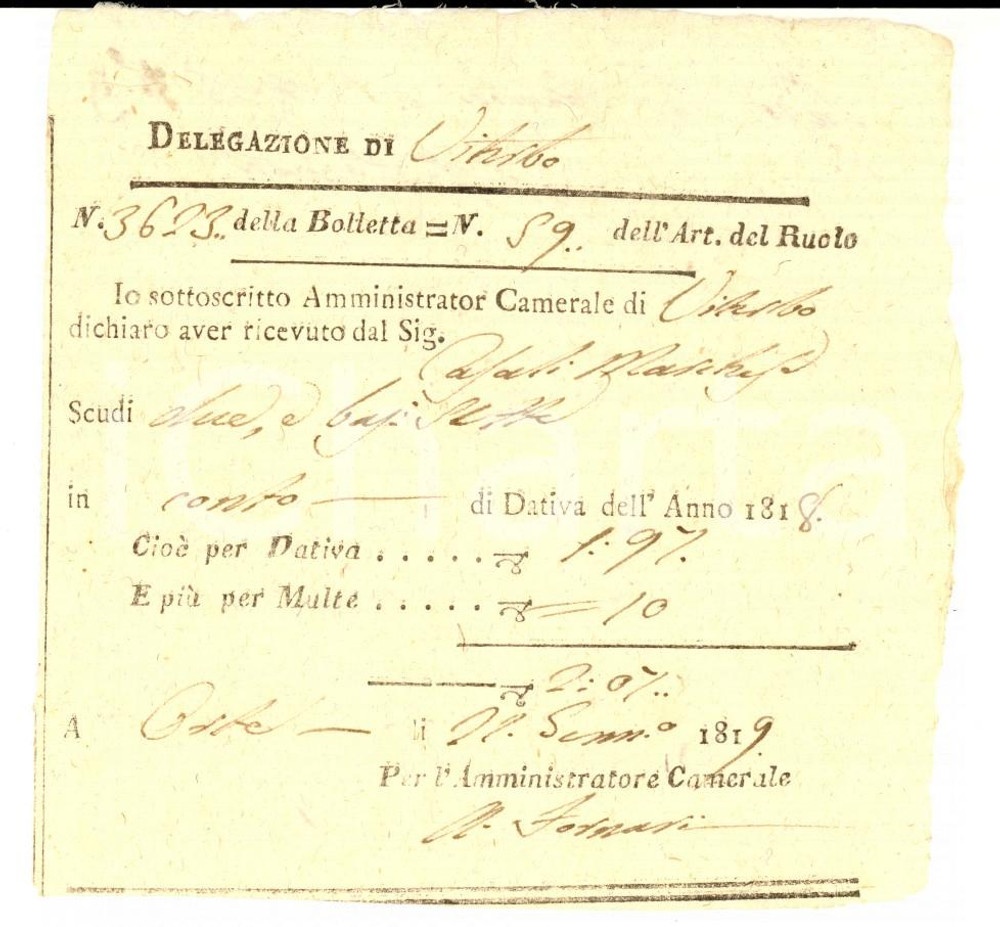 DELEGAZIONE DI Viterbo
N. 3623.. della Bolletta = N. 59.. dell'Art. del Ruolo
Io sottoscritto Amministrator Camerale di Viterbo
dichiaro aver ricevuto dal Sig.
Casali Marchese
Scudi due, e baj: Sette
in conto di Dativa dell' Anno 1818.
Cioè per Dativa . . . . . . 1:97.
E più per Multe . . . . . . = 10
2:07..
A Orte li Genn.o 1819
Per l'Amministratore Camerale
Fornari